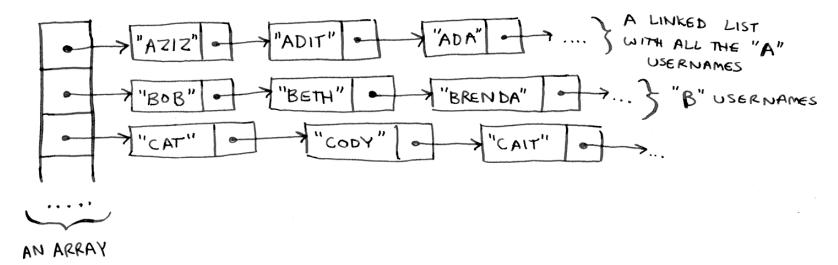 "AZIZ" "ADIT" "ADA" ....
A LINKED LIST
WITH ALL THE "A"
USERNAMES
"BOB" "BETH" "BRENDA" ...
"B" USERNAMES
"CAT" "CODY" "CAIT" ...
.....
AN ARRAY